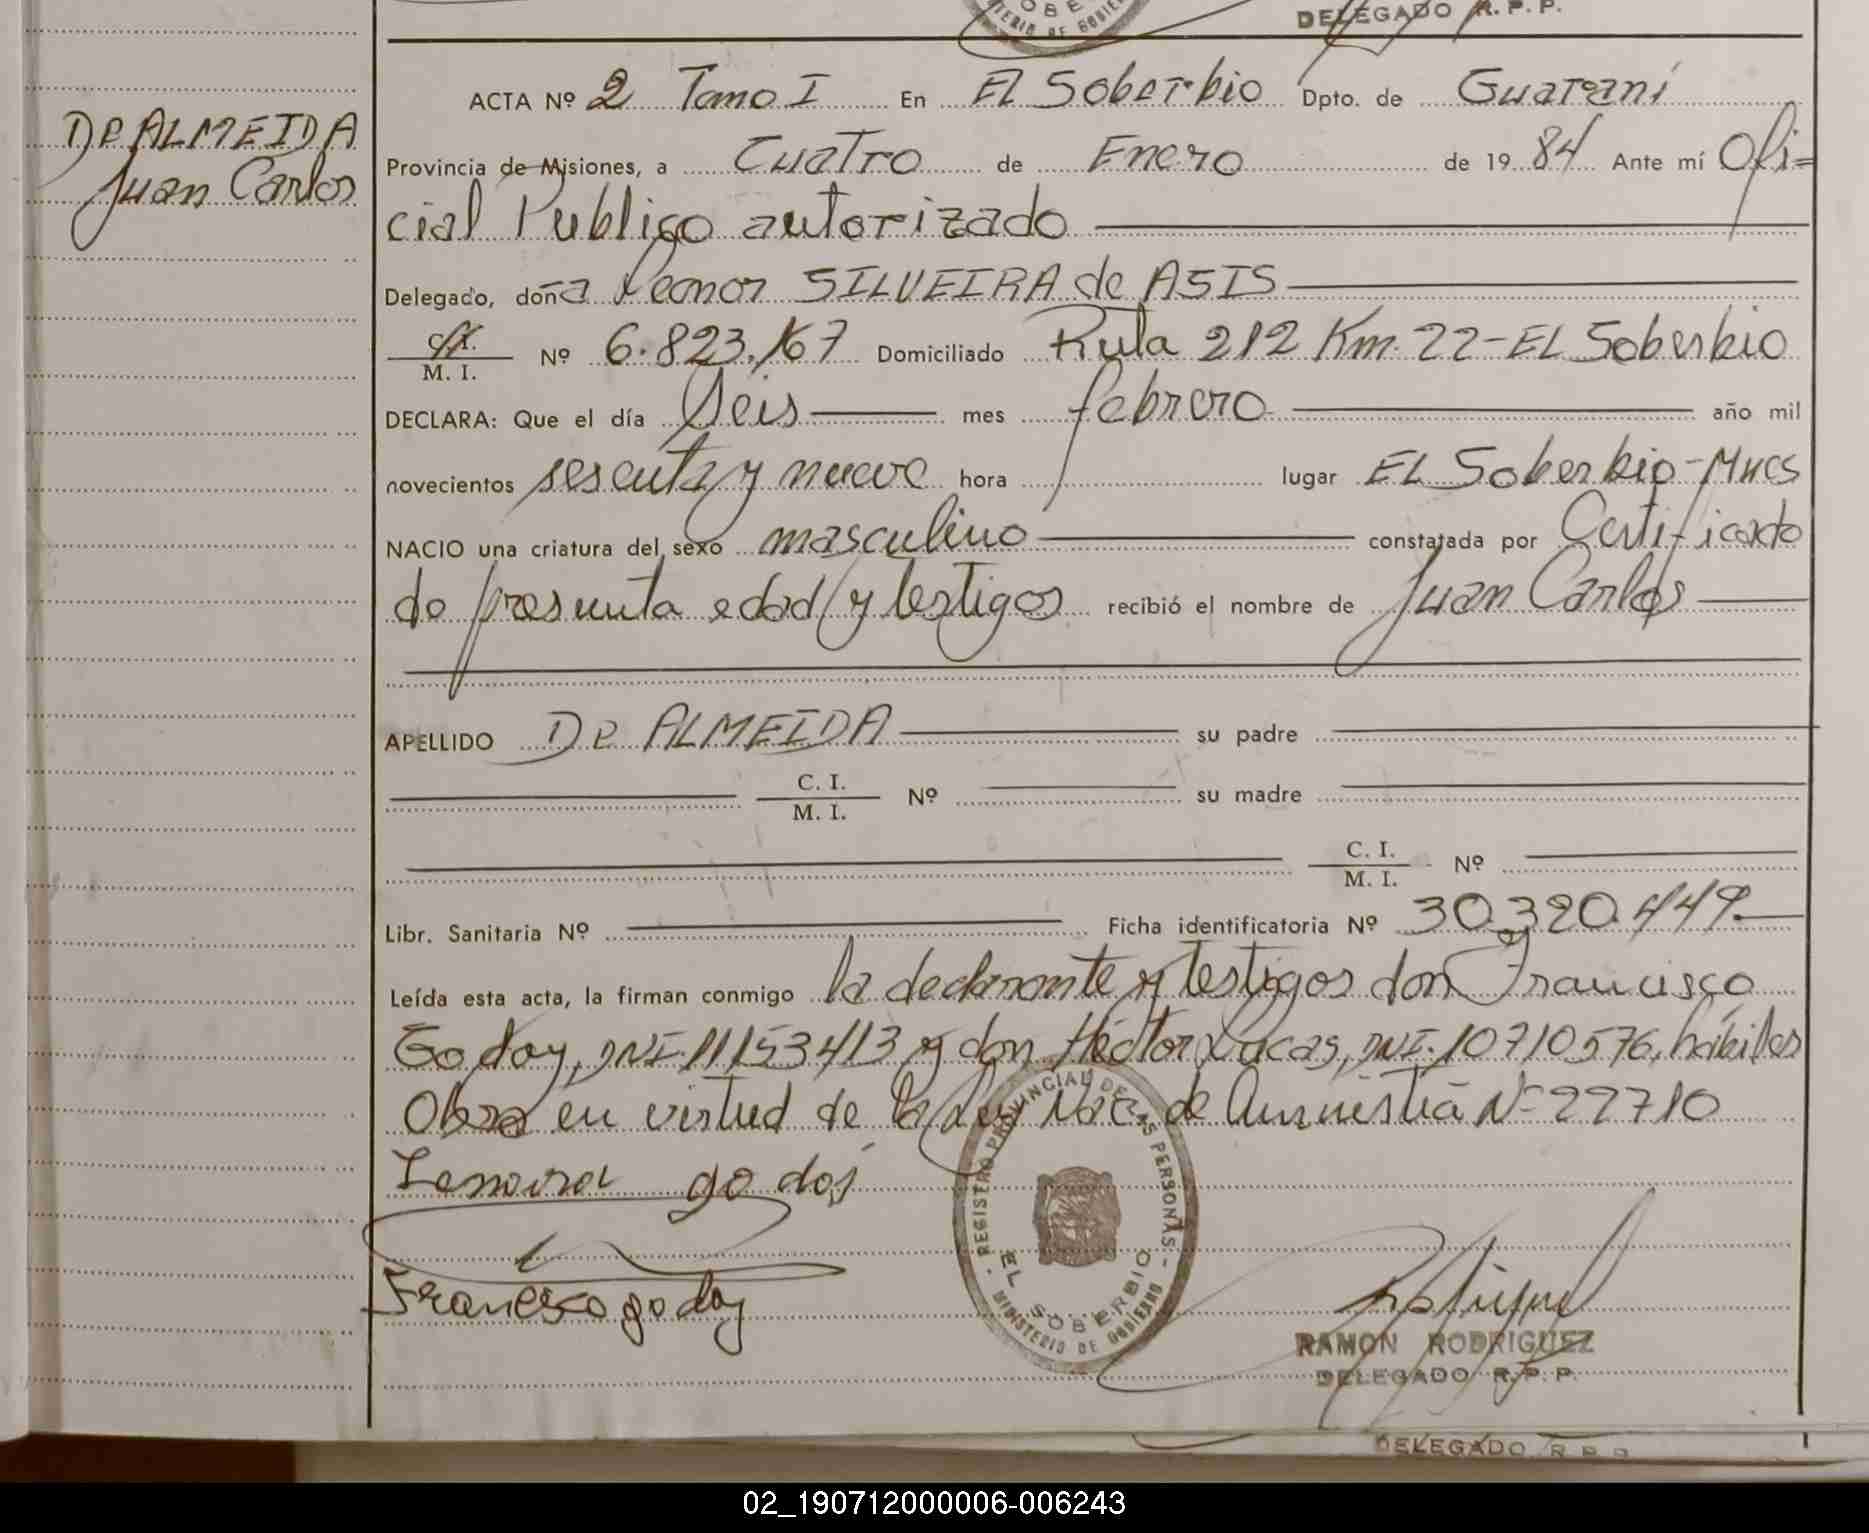 DELEGADO R. P. P.
ACTA Nº 2 Tomo I En El Soberbio Dpto. de Guaraní
De ALMEIDA
Juan Carlos
Provincia de Misiones, a Cuatro de Enero de 19 84 Ante mí Ofi=
cial Publico autorizado
Delegado, doña Leonor SILVEIRA de ASIS
C. I.
M. I. Nº 6.823.167 Domiciliado Ruta 212 Km. 22 - El Soberbio
DECLARA: Que el día Seis mes febrero año mil
novecientos sesenta y nueve hora lugar El Soberbio - Mnes
NACIO una criatura del sexo masculino constatada por Certificado
de presunta edad y testigos recibió el nombre de Juan Carlos
APELLIDO De ALMEIDA su padre
C. I.
M. I. Nº su madre
C. I.
M. I. Nº
Libr. Sanitaria Nº Ficha identificatoria Nº 30.320.449.
Leída esta acta, la firman conmigo la declarante y testigos don Francisco
Godoy, DNI. 11153413 y don Héctor Lucas, DNI. 10710576, hábiles
Obra en virtud de la Ley Nac. de Amnistia Nº 22710
REGISTRO PROVINCIAL DE LAS PERSONAS
EL SOBERBIO
MINISTERIO DE GOBIERNO
Francisco godoy
RAMON RODRIGUEZ
DELEGADO R. P. P.
DELEGADO R. P. P.
02_190712000006-006243